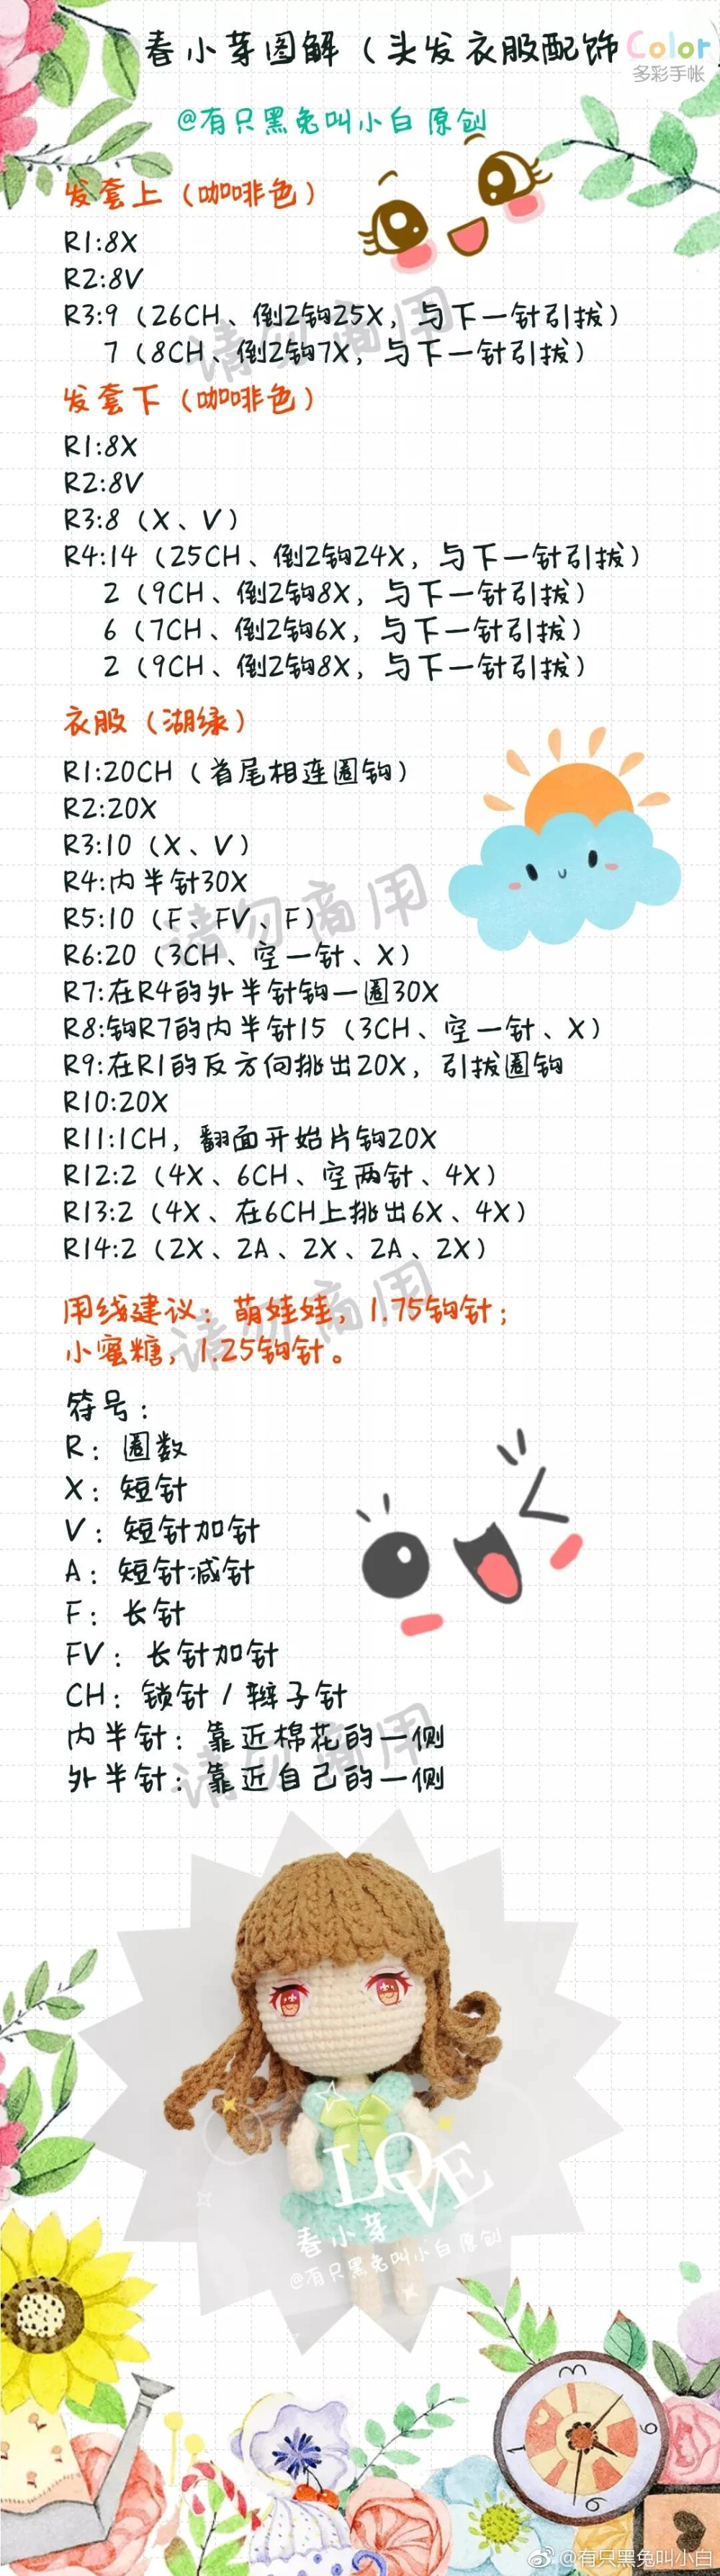 春小芽图解（头发衣服配饰
Color
多彩手帐
@有只黑兔叫小白 原创
发套上（咖啡色）
R1:8X
R2:8V
R3:9（26CH、倒2钩25X，与下一针引拔）
7（8CH、倒2钩7X，与下一针引拔）
请勿商用
发套下（咖啡色）
R1:8X
R2:8V
R3:8（X、V）
R4:14（25CH、倒2钩24X，与下一针引拔）
2（9CH、倒2钩8X，与下一针引拔）
6（7CH、倒2钩6X，与下一针引拔）
2（9CH、倒2钩8X，与下一针引拔）
衣服（湖绿）
R1:20CH（首尾相连圈钩）
R2:20X
R3:10（X、V）
R4:内半针30X
R5:10（F、FV、F）
请勿商用
R6:20（3CH、空一针、X）
R7:在R4的外半针钩一圈30X
R8:钩R7的内半针15（3CH、空一针、X）
R9:在R1的反方向挑出20X，引拔圈钩
R10:20X
R11:1CH，翻面开始片钩20X
R12:2（4X、6CH、空两针、4X）
R13:2（4X、在6CH上挑出6X、4X）
R14:2（2X、2A、2X、2A、2X）
用线建议：萌娃娃，1.75钩针；
请勿商用
小蜜糖，1.25钩针。
符号：
R：圈数
X：短针
V：短针加针
A：短针减针
F：长针
FV：长针加针
CH：锁针/辫子针
内半针：靠近棉花的一侧
请勿商用
外半针：靠近自己的一侧
LOVE
春小芽
@有只黑兔叫小白 原创
@有只黑兔叫小白